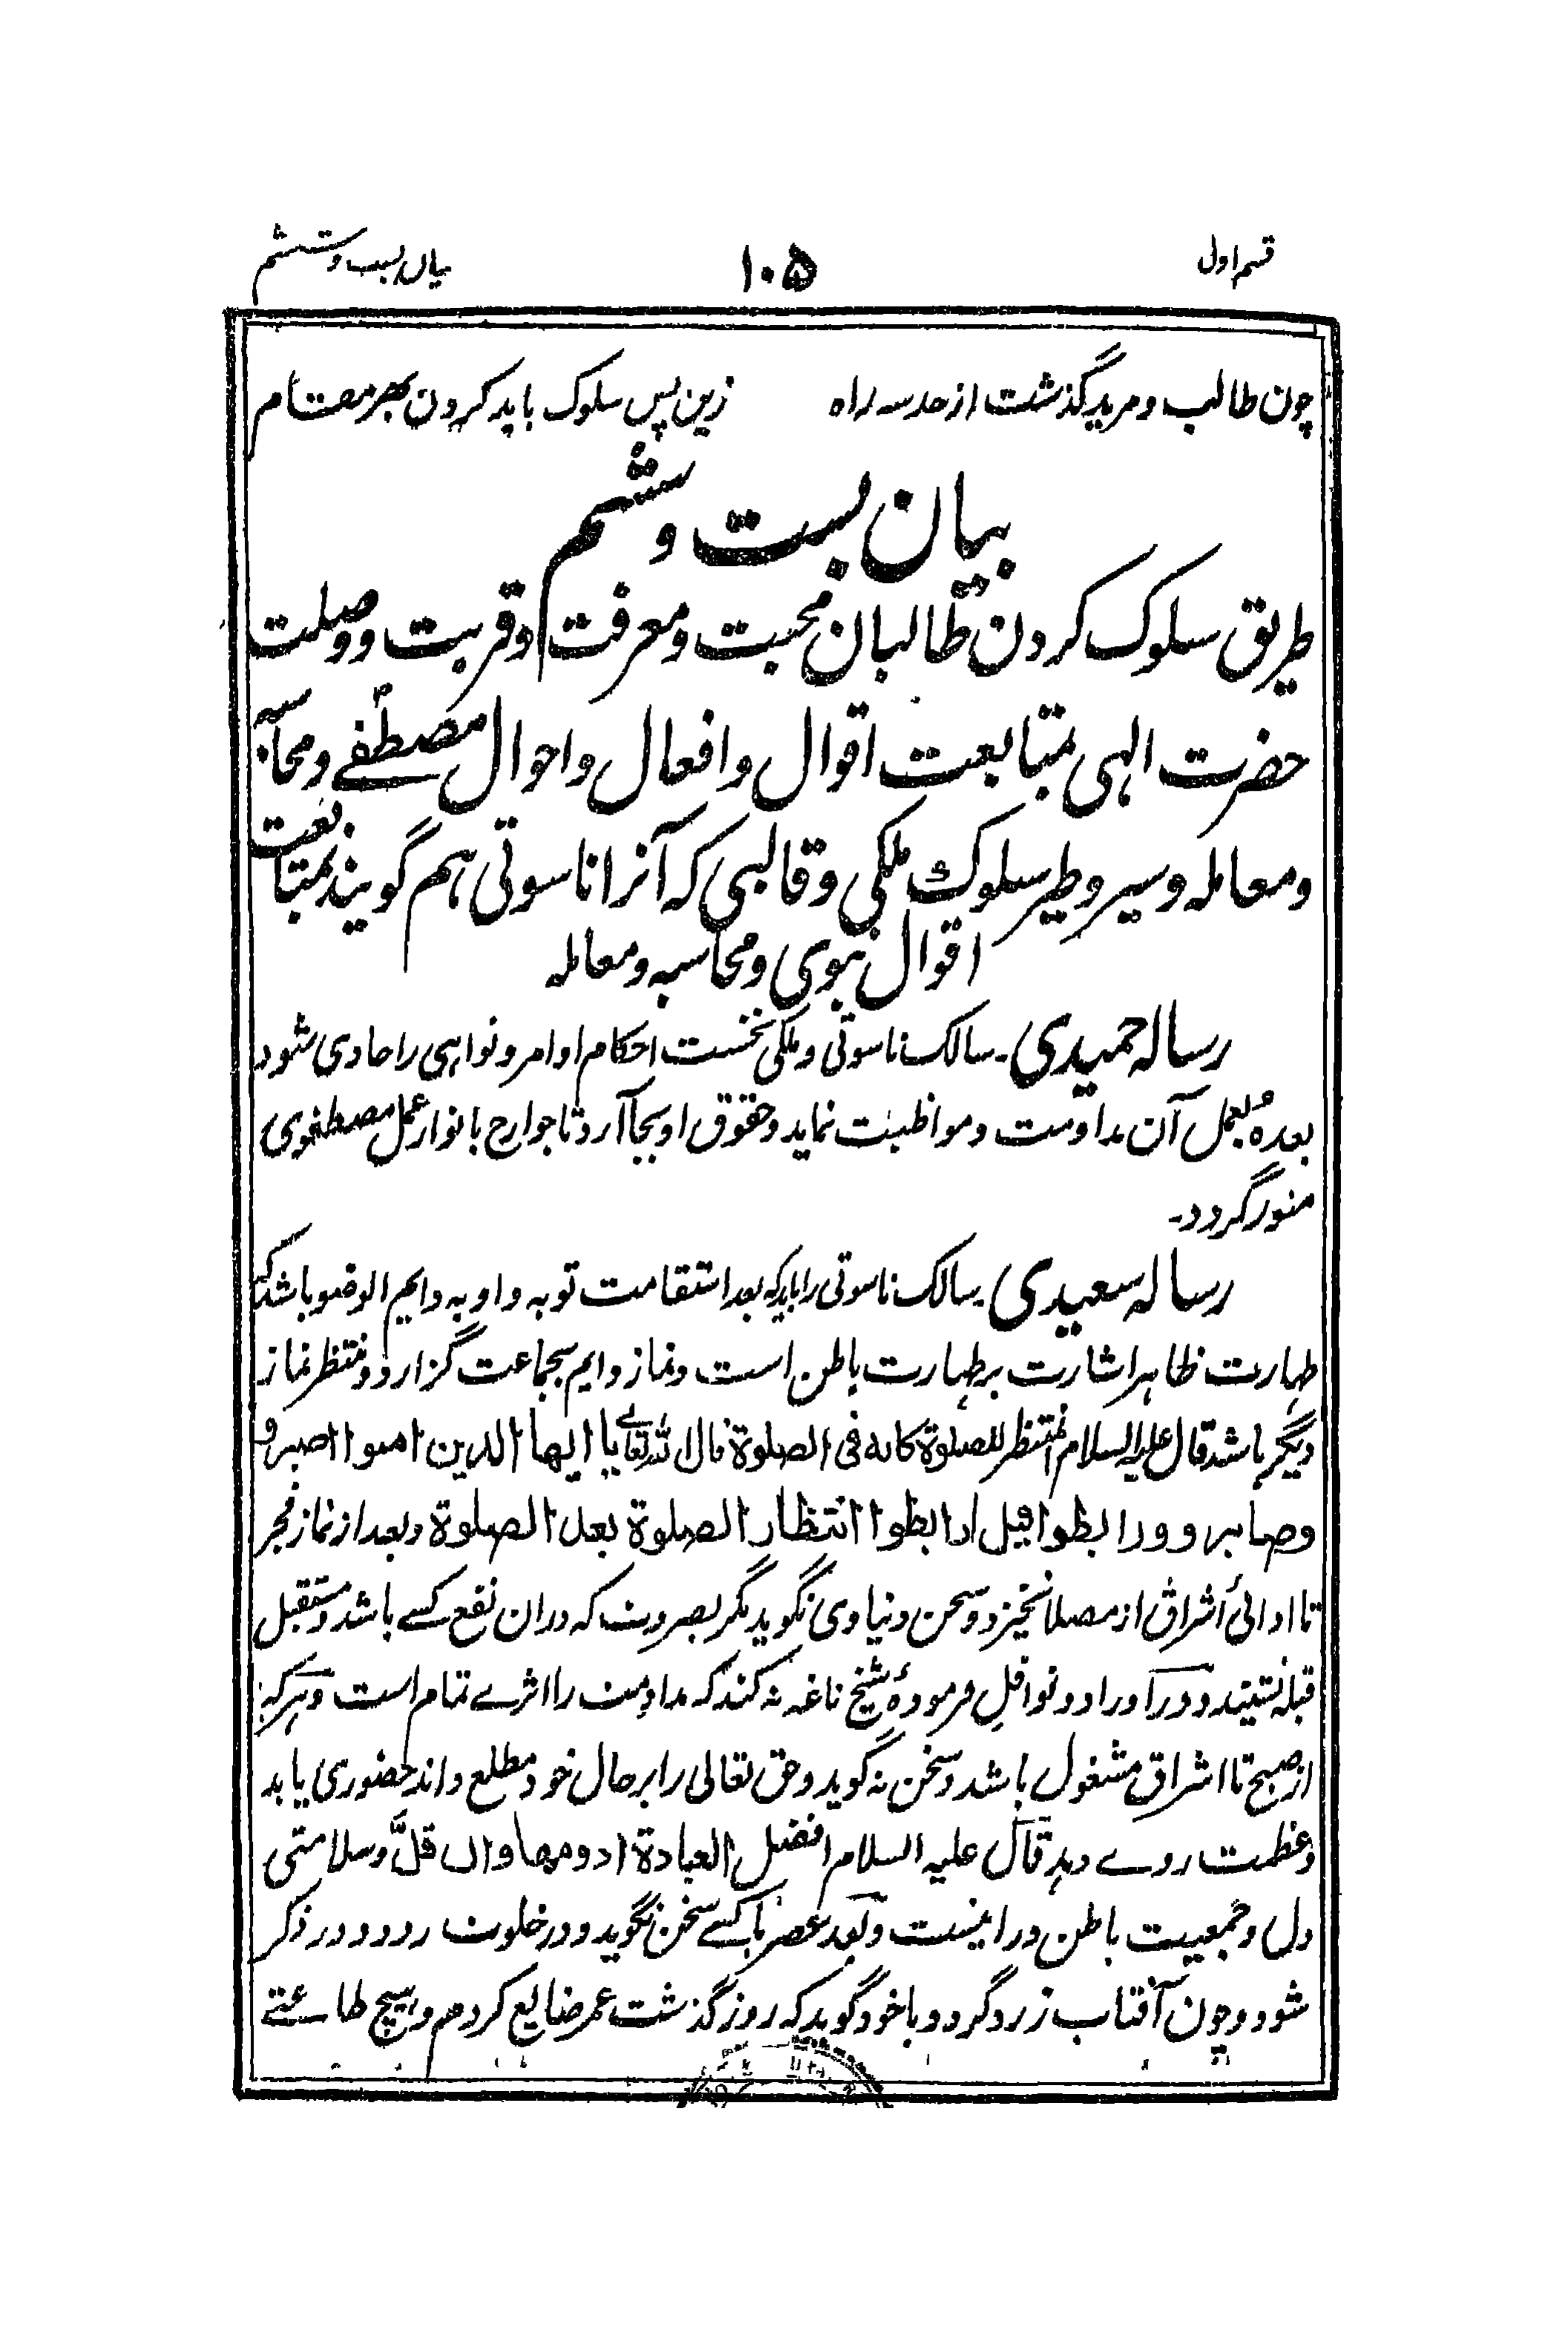 قسم اول ۱۰۵ بیان بست و ششم
چون طالب و مرید گذشت از حد سه راه زین پس سلوک باید کردن بهر مقام
بیان بست و ششم
طریق سلوک کردن طالبان محبت و معرفت و قربت و وصلت
حضرت الہی بمتابعت اقوال و افعال و احوال مصطفےؐ و محاسبہ
و معاملہ و سیر و طیر سلوک ملکی و قالبی کہ آنرا ناسوتی ہم گویند بمتابعت
اقوال نبوی و محاسبہ و معاملہ
رسالہ حمیدی۔ سالک ناسوتی و ملکی نخست احکام اوامر و نواہی را حاوی شود
بعدہٗ بعمل آن مداومت و مواظبت نماید و حقوق او بجا آرد تا جوارح بانوار عمل مصطفوی
منور گردد۔
رسالہ سعیدی۔ سالک ناسوتی را باید کہ بعد استقامت توبہ و اوبہ دایم الوضو باشد کہ
طہارت ظاہر اشارت بر طہارت باطن است و نماز دایم بجماعت گزارد و منتظر نماز
دیگر باشد قال علیہ السلام المنتظر للصلوة کانه فی الصلوة قال اللہ تعالے یا ایها الذین امنوا اصبرو
وصابرو ورابطوا قیل رابطوا انتظار الصلوة بعد الصلوة و بعد از نماز فجر
تا ادائی اشراق از مصلا نخیزد و سخن دنیاوی نگوید مگر بضرورت کہ دران نفع کسے باشد و مستقبل
قبلہ نشیند و در اوراد و نوافل فرمودۂ شیخ ناغہ نہ کند کہ مداومت را اثرے تمام است و ہر کہ
از صبح تا اشراق مشغول باشد و سخن نہ گوید و حق تعالی را بر حال خود مطلع داند حضوری یابد
و عظمت روے دہد قال علیہ السلام افضل العبادة ادومها وان قلّ و سلامتی
دل و جمعیت باطن در اینست و بعد عصر با کسے سخن نگوید و در خلوت رود و در ذکر
شود و چون آفتاب زرد گردد با خود گوید کہ روز گذشت عمر ضایع کردم و ہیچ طاعتے